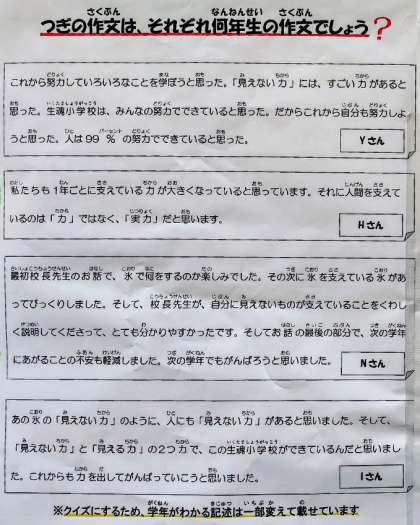 つぎの作文は、それぞれ何年生の作文でしょう?
これから努力していろいろなことを学ぼうと思った。「見えない力」には、すごい力があると
思った。生魂小学校は、みんなの努力でできていると思った。だからこれから自分も努力しよ
うと思った。人は99%の努力でできていると思った。
Yさん
私たちも1年ごとに支えている力が大きくなっていると思っています。それに人間を支えて
いるのは「力」ではなく、「実力」だと思います。
Hさん
最初校長先生のお話で、氷で何をするのか楽しみでした。その次に氷を支えている氷があ
ってびっくりしました。そして、校長先生が、自分に見えないものが支えていることをくわし
く説明してくださって、とても分かりやすかったです。そしてお話の最後の部分で、次の学年
にあがることの不安も軽減しました。次の学年でもがんばろうと思いました。
Nさん
あの氷の「見えない力」のように、人にも「見えない力」があると思いました。そして、
「見えない力」と「見える力」の2つ力で、この生魂小学校ができているんだと思いまし
た。これからも力を出してがんばっていこうと思いました。
Iさん
※クイズにするため、学年がわかる記述は一部変えて載せています